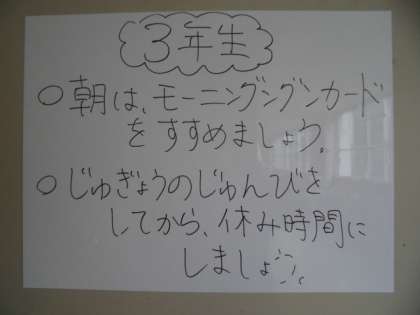 3年生
○朝は、モーニングシグンカード
をすすめましょう。
○じゅぎょうのじゅんびを
してから、休み時間に
しましょ